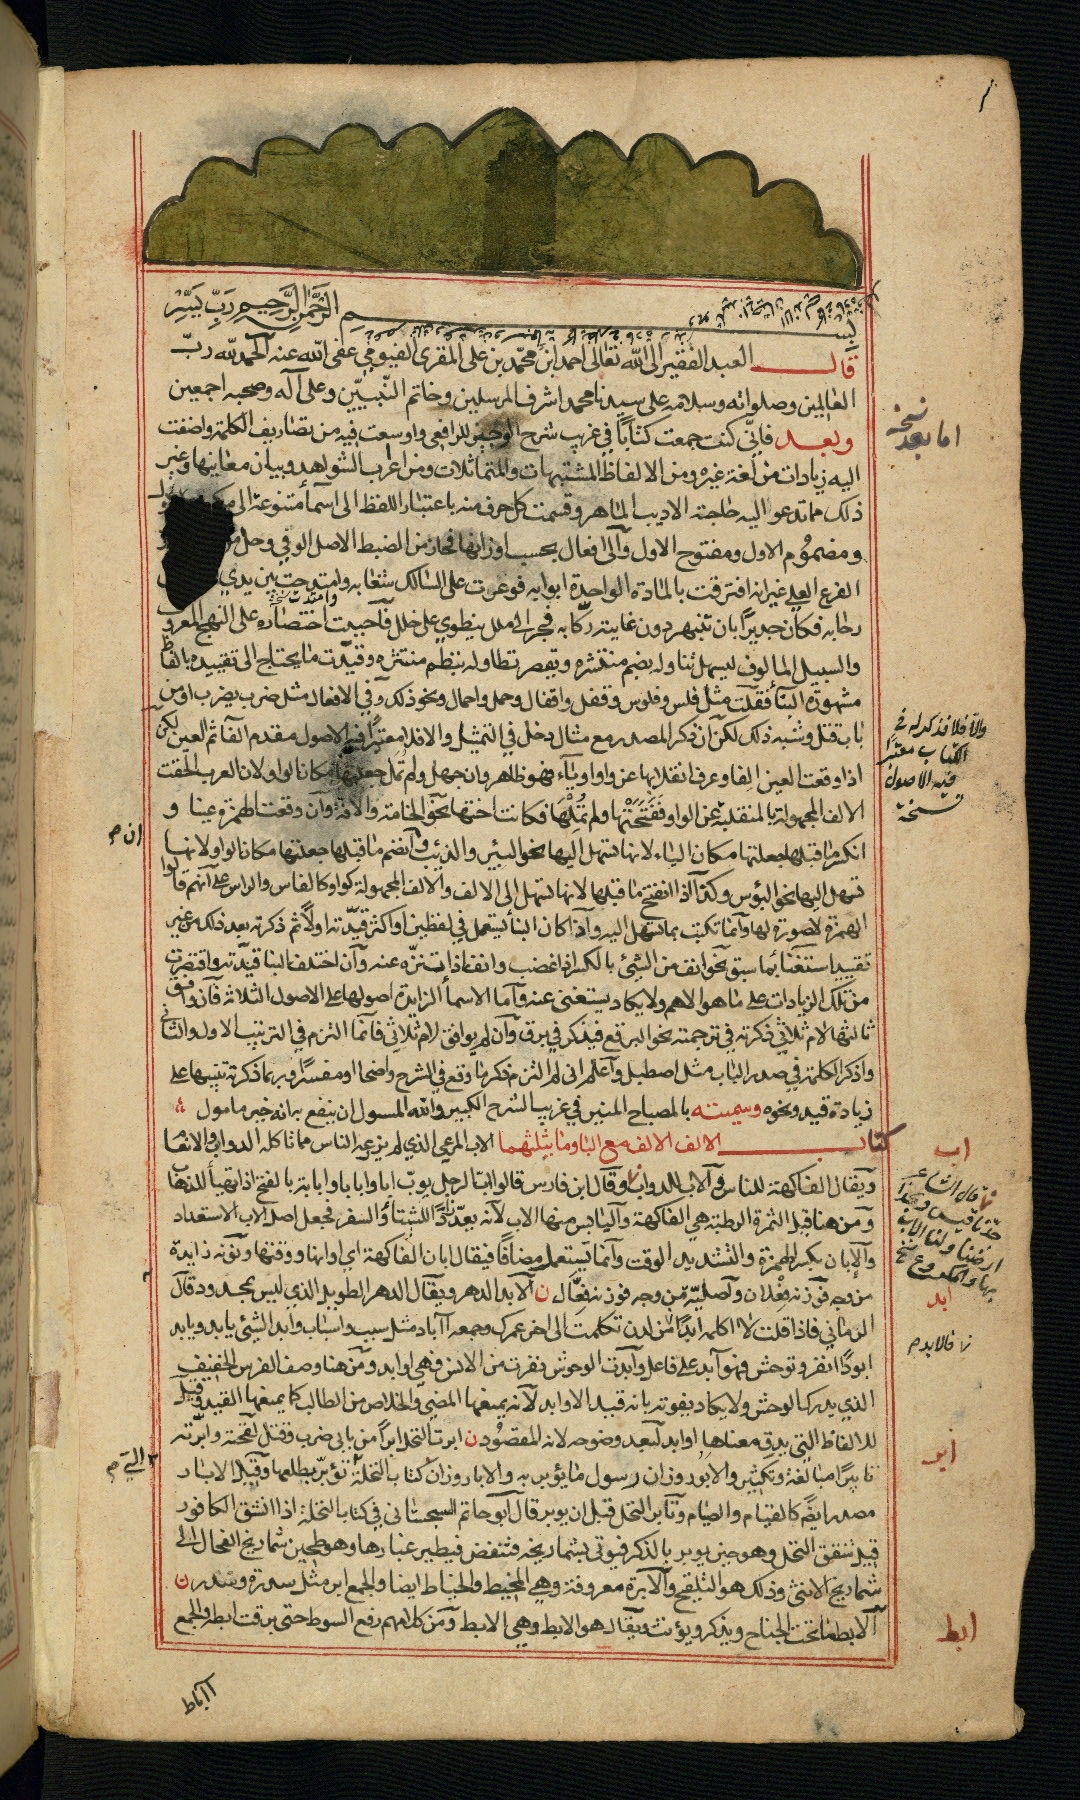 بسم الله الرحمن الرحيم رب يسر
قال العبد الفقير الى الله تعالى احمد ابن محمد بن على المقرى الفيومي عفى الله عنه الحمد لله رب
العالمين وصلواته وسلامه على سيدنا محمد اشرف المرسلين وخاتم النبيين وعلى آله وصحبه اجمعين
وبعد فاني كنت جمعت كتابا في غريب شرح الوجيز للرافعي واوسعت فيه من تصاريف الكلمة واضفت
اليه زيادات من لغة غيره ومن الالفاظ المشتبهات والمتماثلات ومن اعراب الشواهد وبيان معانيها وغير
ذلك مما تدعو اليه حاجة الاديب الماهر وقسمت كل حرف منه باعتبار اللفظ الى اسماء متنوعة الى
ومضموم الاول ومفتوح الاول وآلى افعال بحسب اوزانها فحاز من الضبط الاصل الوفي وحل من
الفرع العلي غير انه افترقت بالمادة الواحدة ابوابه فوعرت على السالك شعابه وامتدحت بين يدي
رحابه فكان جديرا بان تنبهر دون غايته ركابه فجر الى ملل ينطوي على خلل فاحببت اختصاره على النهج المعروف
والسبيل المالوف ليسهل تناوله بضم منتشره ويقصر تطاوله بنظم منتثره وقيدت ما يحتاج الى تقييده بالفاظ
مشهورة البناء فقلت مثل فلس وفلوس وقفل واقفال وحمل واحمال ونحو ذلك وفي الافعال مثل ضرب يضرب او من
باب قتل وشبه ذلك لكن ان ذكر المصدر مع مثال دخل في التمثيل والا فلا معتبرا فيه الاصول مقدم الفآ ثم العين لكن
اذا وقعت العين الفا وعرف انقلابها عن واو او يآء فهو ظاهر وان جهل ولم تمل جعلتها مكان الواو لان العرب الحقت
الالف المجهولة بالمنقلبة عن الواو ففتحتها ولم تملها فكانت اختها نحو الخامة والآفة وان وقعت الهمزة عينا و
انكسر ما قبلها جعلتها مكان الياء لانها تسهل اليها نحو البير والذيب وان انضم ما قبلها جعلتها مكان الواو لانها
تسهل اليها نحو البؤس وكذا اذا انفتح ما قبلها لانها تسهل الى الالف والالف المجهولة كواو كالفاس والراس على انهم قالوا
الهمزة لا صورة لها وانما تكتب بما تسهل اليه واذا كان البناء يستعمل في لفظين او اكثر قيدته اولا ثم ذكرته بعد ذلك من غير
تقييد استغناء بما سبق نحو انف من الشئ بالكسر اذا غضب وانف اذا تنزه عنه وان اختلف البنا قيدته واقتصرت
من تلك الزيادات على ما هو الاهم ولا يكاد يستغنى عنه واما الاسمأ الزايدة اصولها على الاصول الثلاثة فان وافق
ثالثها لام ثلاثي ذكرته في ترجمته نحو البرقع فيذكر في برق وان لم يوافق لام ثلاثي فانما التزم في الترتيب الاول والثاني
واذكر الكلمة في صدر الباب مثل اصطبل واعلم اني لم التزم ذكر ما وقع في الشرح واضحا او مفسرا وربما ذكرته تنبيها على
زيادة قيد ونحوه وسميته بالمصباح المنير في غريب الشرح الكبير والله المسول ان ينفع به انه خير مامول
كتاب الالف الالف مع البا وما يثلثهما الاب المرعى الذي لم يزرعه الناس مما تاكله الدواب والانعام
ويقال الفاكهة للناس والاب للدواب وقال ابن فارس قالوا اب الرجل يوب ابا وابابا وابابة بالفتح اذا تهيأ للذهاب
ومن هنا قيل الثمرة الرطبة هي الفاكهة واليابس منها الاب لانه يعد زادا للشتاء والسفر فجعل اصل الاب الاستعداد
والابان بكسر الهمزة والتشديد الوقت وانما يستعمل مضافا فيقال ابان الفاكهة اي اوانها ووقتها ونونه زايدة
من وجه فوزنه فعلان واصلية من وجه فوزنه فعال ن الابد الدهر ويقال الدهر الطويل الذي ليس بمحدود قال
الرماني فاذا قلت لا اكلمه ابدا من لدن تكلمت الى اخر عمرك وجمعه آباد مثل سبب واسباب وابد الشئ يابد ويابد
ابودا نفر وتوحش فهو آبد على فاعل وابدت الوحوش نفرت من الانس فهي اوابد ومن هنا وصف الفرس الخفيف
الذي يدرك الوحش ولا يكاد يفوته بانه قيد الاوابد لانه يمنعها المضي والخلاص من الطالب كما يمنعها القيد وقيل
للالفاظ التي يدق معناها اوابد لبعد وضوحه لانه المقصود ن ابرت النخل ابرا من بابي ضرب وقتل لقحته وابرته
تابيرا مبالغة وتكثير والابور وزان رسول ما يؤبر به والابار وزان كتاب النخلة تؤبر بطلعها وقيل الابار
مصدر ايضا كالقيام والصيام وتابر النخل قبل ان يوبر قال ابو حاتم السجستاني في كتاب النخلة اذا انشق الكافور
قيل شقق النخل وهو حين يوبر بالذكر فيوتى بشماريخه فتنفض فيطير غبارها وهو طحين شماريخ الفحال الى
شماريخ الانثى وذلك هو التلقيح والابرة معروفة وهي المخيط والخياط ايضا والجمع ابر مثل سدرة وسدر ن
الابط ما تحت الجناح ويذكر ويؤنث ويقال هو الابط وهي الابط ومن كلامهم رفع السوط حتى برقت ابطه والجمع
آباط
اما بعد نسخة
والا فلا فذكر له في
الكتاب معتبرا
فيه الاصول
نسخة
اب
ابد
فالابد م
ابر
ابط